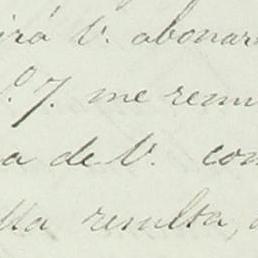 irá V. abonar
º. 7. me remi
a de V. con
lla resulta,